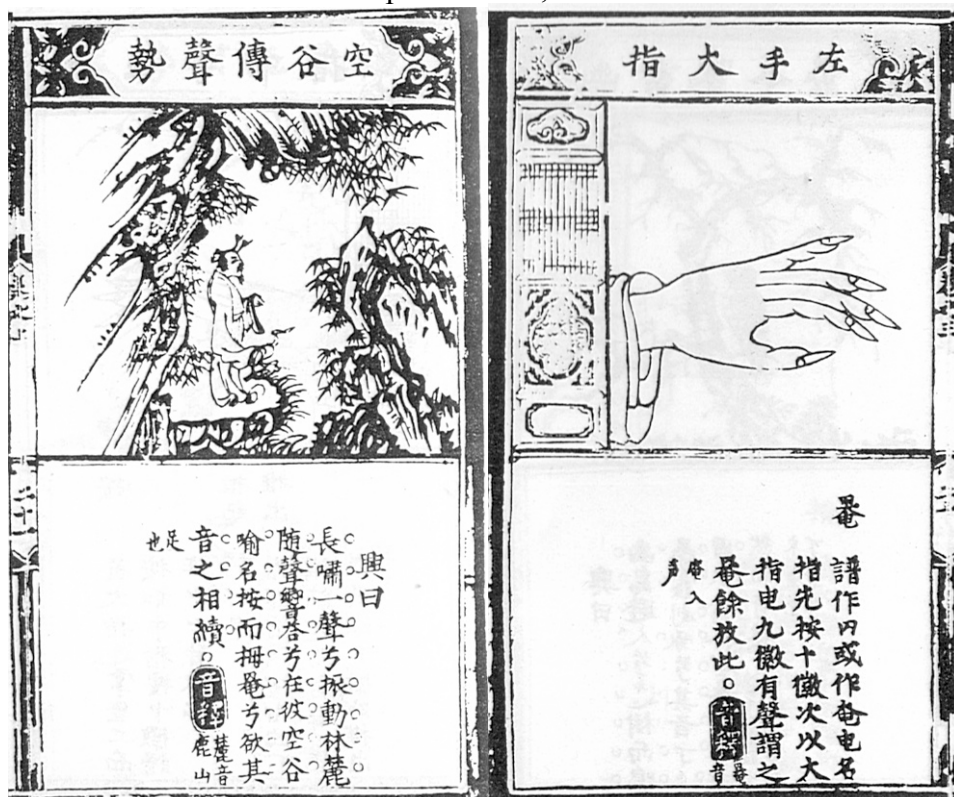 左手大指
罨
譜作円或作奄电名
指先按十徽次以大
指电九徽有聲謂之
罨餘放此。音釋罨音
庵入声
空谷傳聲勢
興曰
長嘯一聲兮振動林麓
随聲響荅兮在彼空谷
喻名按而拇罨兮欲其
音之相續。音釋麓音鹿山
足也
二十一